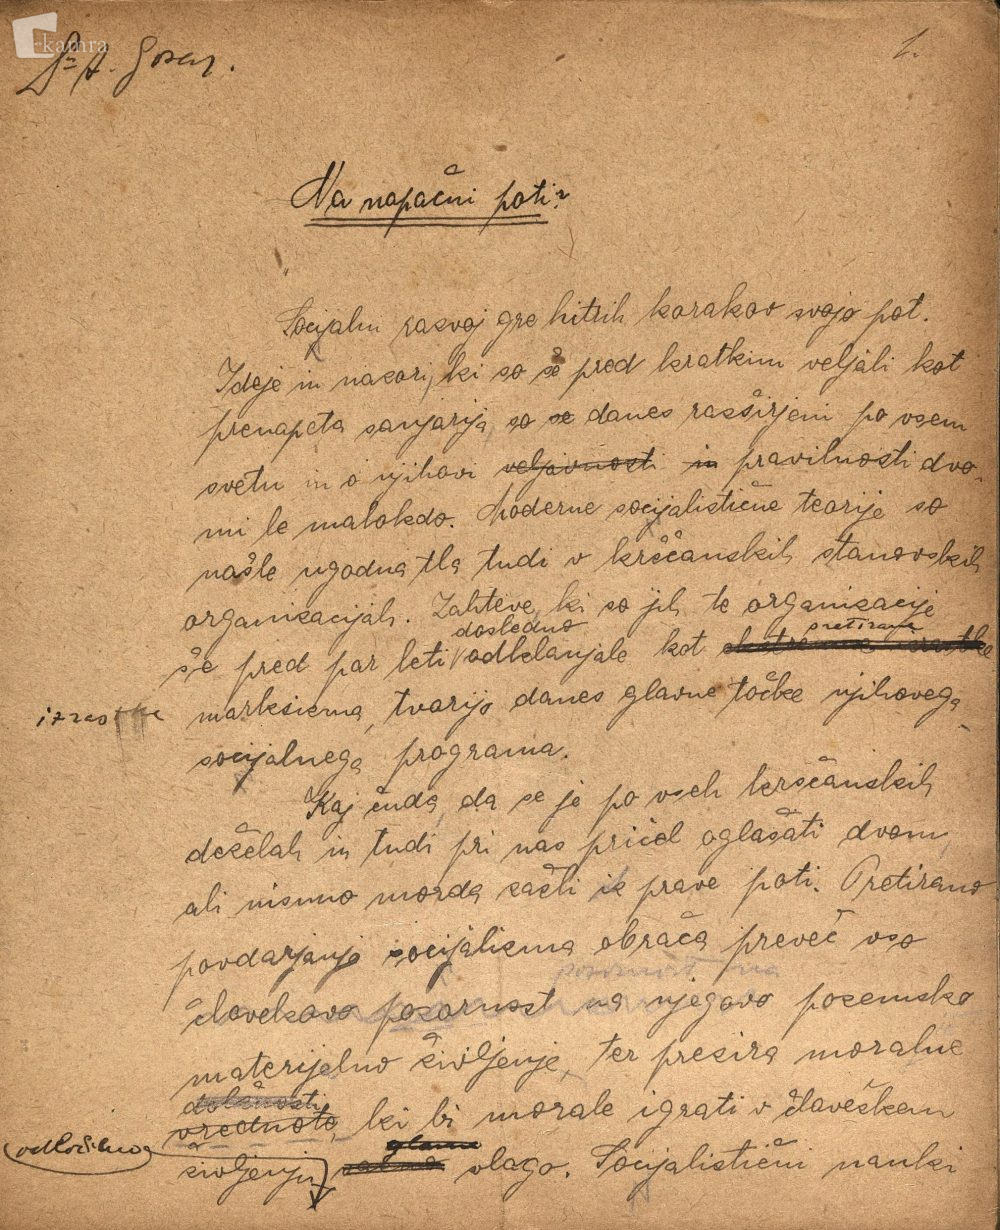 kamra
Dr. A. Gosar.
1.
Na napačni poti?
Socijalni razvoj gre hitrih korakov svojo pot.
Ideje in nazori, ki so še pred kratkim veljali kot
prenapeta sanjarija, so se danes razširjeni po vsem
svetu in o njihovi veljavnosti in pravilnosti dvo-
mi le malokdo. Moderne socijalistične teorije so
našle ugodna tla tudi v krščanskih stanovskih
organizacijah. Zahteve, ki so jih te organizacije
dosledno pretirane
še pred par leti odklanjale kot ekstremne izrastke
izrastke
marksizma, tvorijo danes glavne točke njihovega
socijalnega programa.
Kaj čuda, da se je po vseh krščanskih
deželah in tudi pri nas pričel oglašati dvom,
ali nismo morda zašli iz prave poti. Pretirano
povdarjanje socijalizma obrača preveč vso
pozornost na
človekovo pozornost na njegovo pozemsko
materijelno življenje, ter prezira moralne
dolžnosti,
vrednote, ki bi morale igrati v človeškem
odločilno
glavno
življenju važno vlogo. Socijalistični nauki